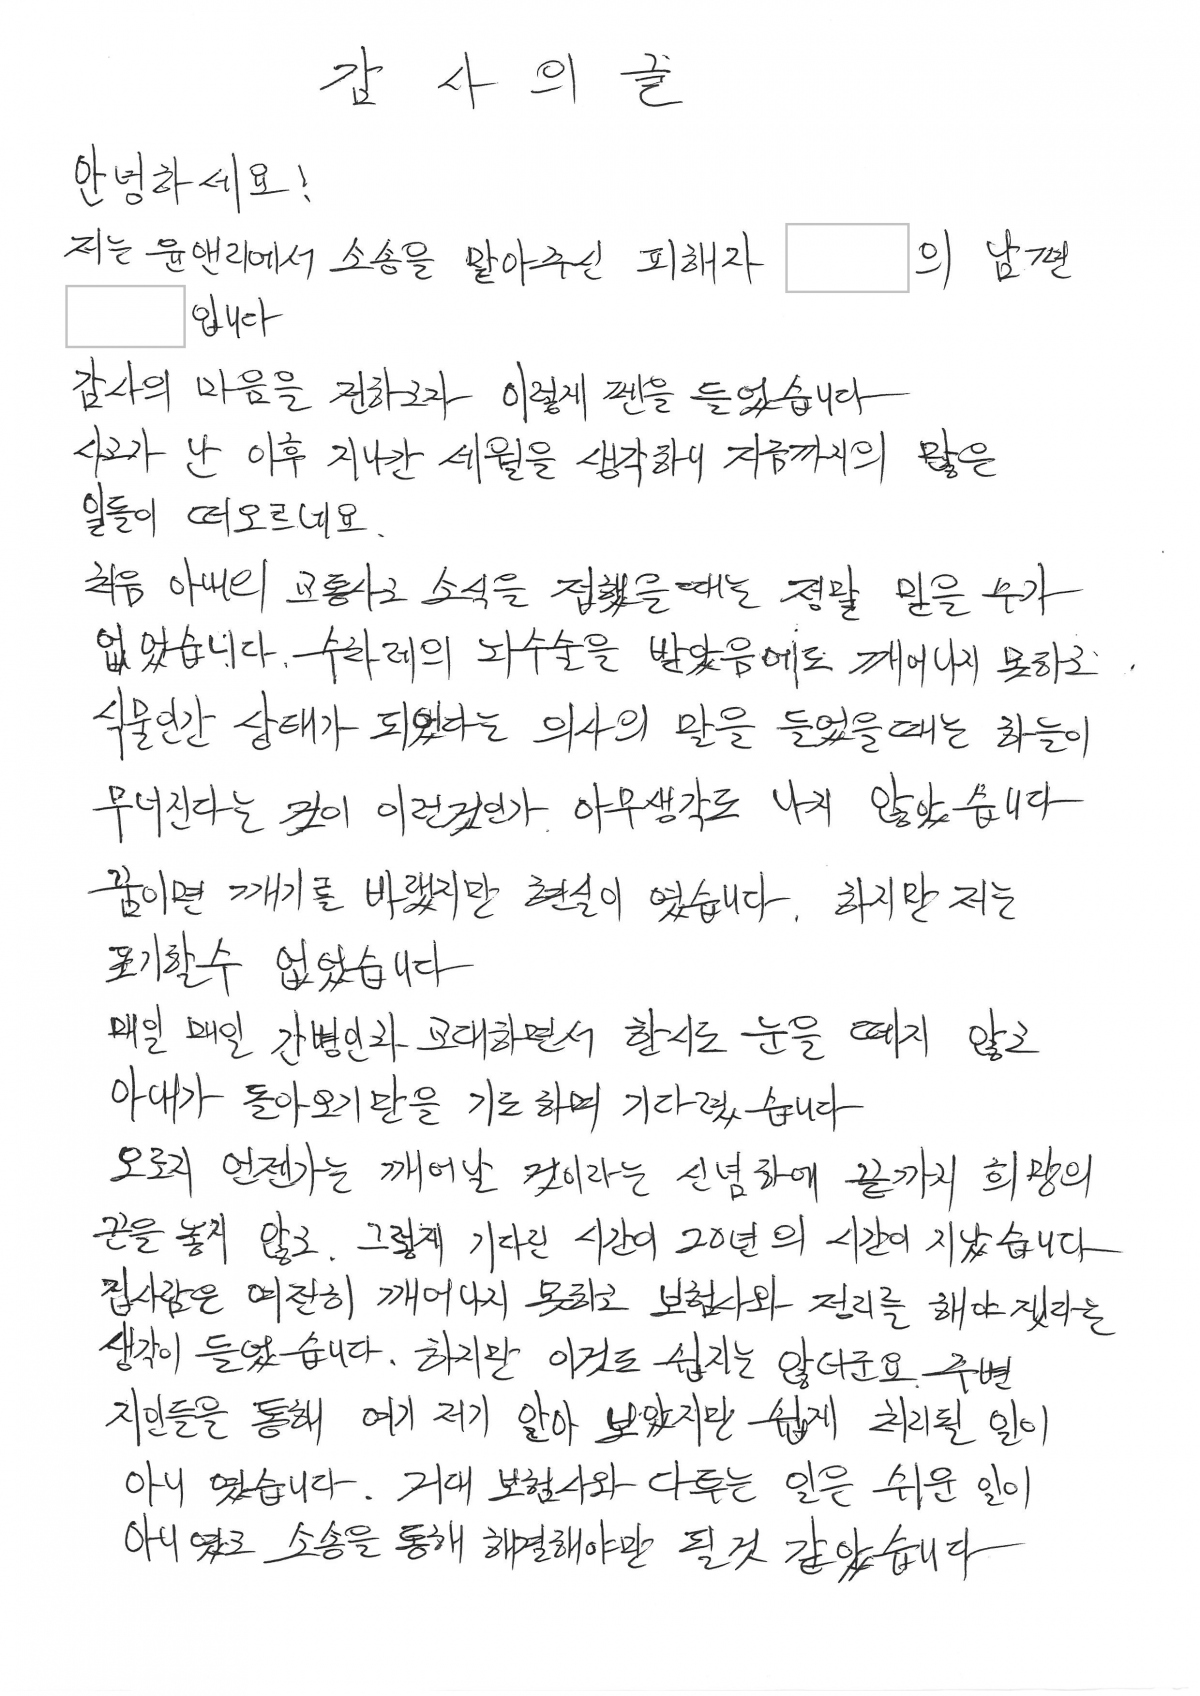 감 사 의 글
안녕하세요!
저는 윤앤리에서 소송을 맡아주신 피해자 의 남편
입니다
감사의 마음을 전하고자 이렇게 펜을 들었습니다
사고가 난 이후 지나간 세월을 생각하니 지금까지의 많은
일들이 떠오르네요.
처음 아내의 교통사고 소식을 접했을때는 정말 믿을 수가
없었습니다. 수차례의 뇌수술을 받았음에도 깨어나지 못하고
식물인간 상태가 되었다는 의사의 말을 들었을때는 하늘이
무너진다는 것이 이런것인가 아무생각도 나지 않았습니다
꿈이면 깨기를 바랬지만 현실이 였습니다. 하지만 저는
포기할수 없었습니다
매일 매일 간병인과 교대하면서 한시도 눈을 떼지 않고
아내가 돌아오기만을 기도하며 기다렸습니다
오로지 언젠가는 깨어날 것이라는 신념하에 끝까지 희망의
끈을 놓지 않고. 그렇게 기다린 시간이 20년의 시간이 지났습니다
집사람은 여전히 깨어나지 못하고 보험사와 정리를 해야 겠라는
생각이 들었습니다. 하지만 이것도 쉽지는 않더군요. 주변
지인들을 통해 여기 저기 알아 보았지만 쉽게 처리될 일이
아니 였습니다. 거대 보험사와 다투는 일은 쉬운 일이
아니였고 소송을 통해 해결해야만 될것 같았습니다